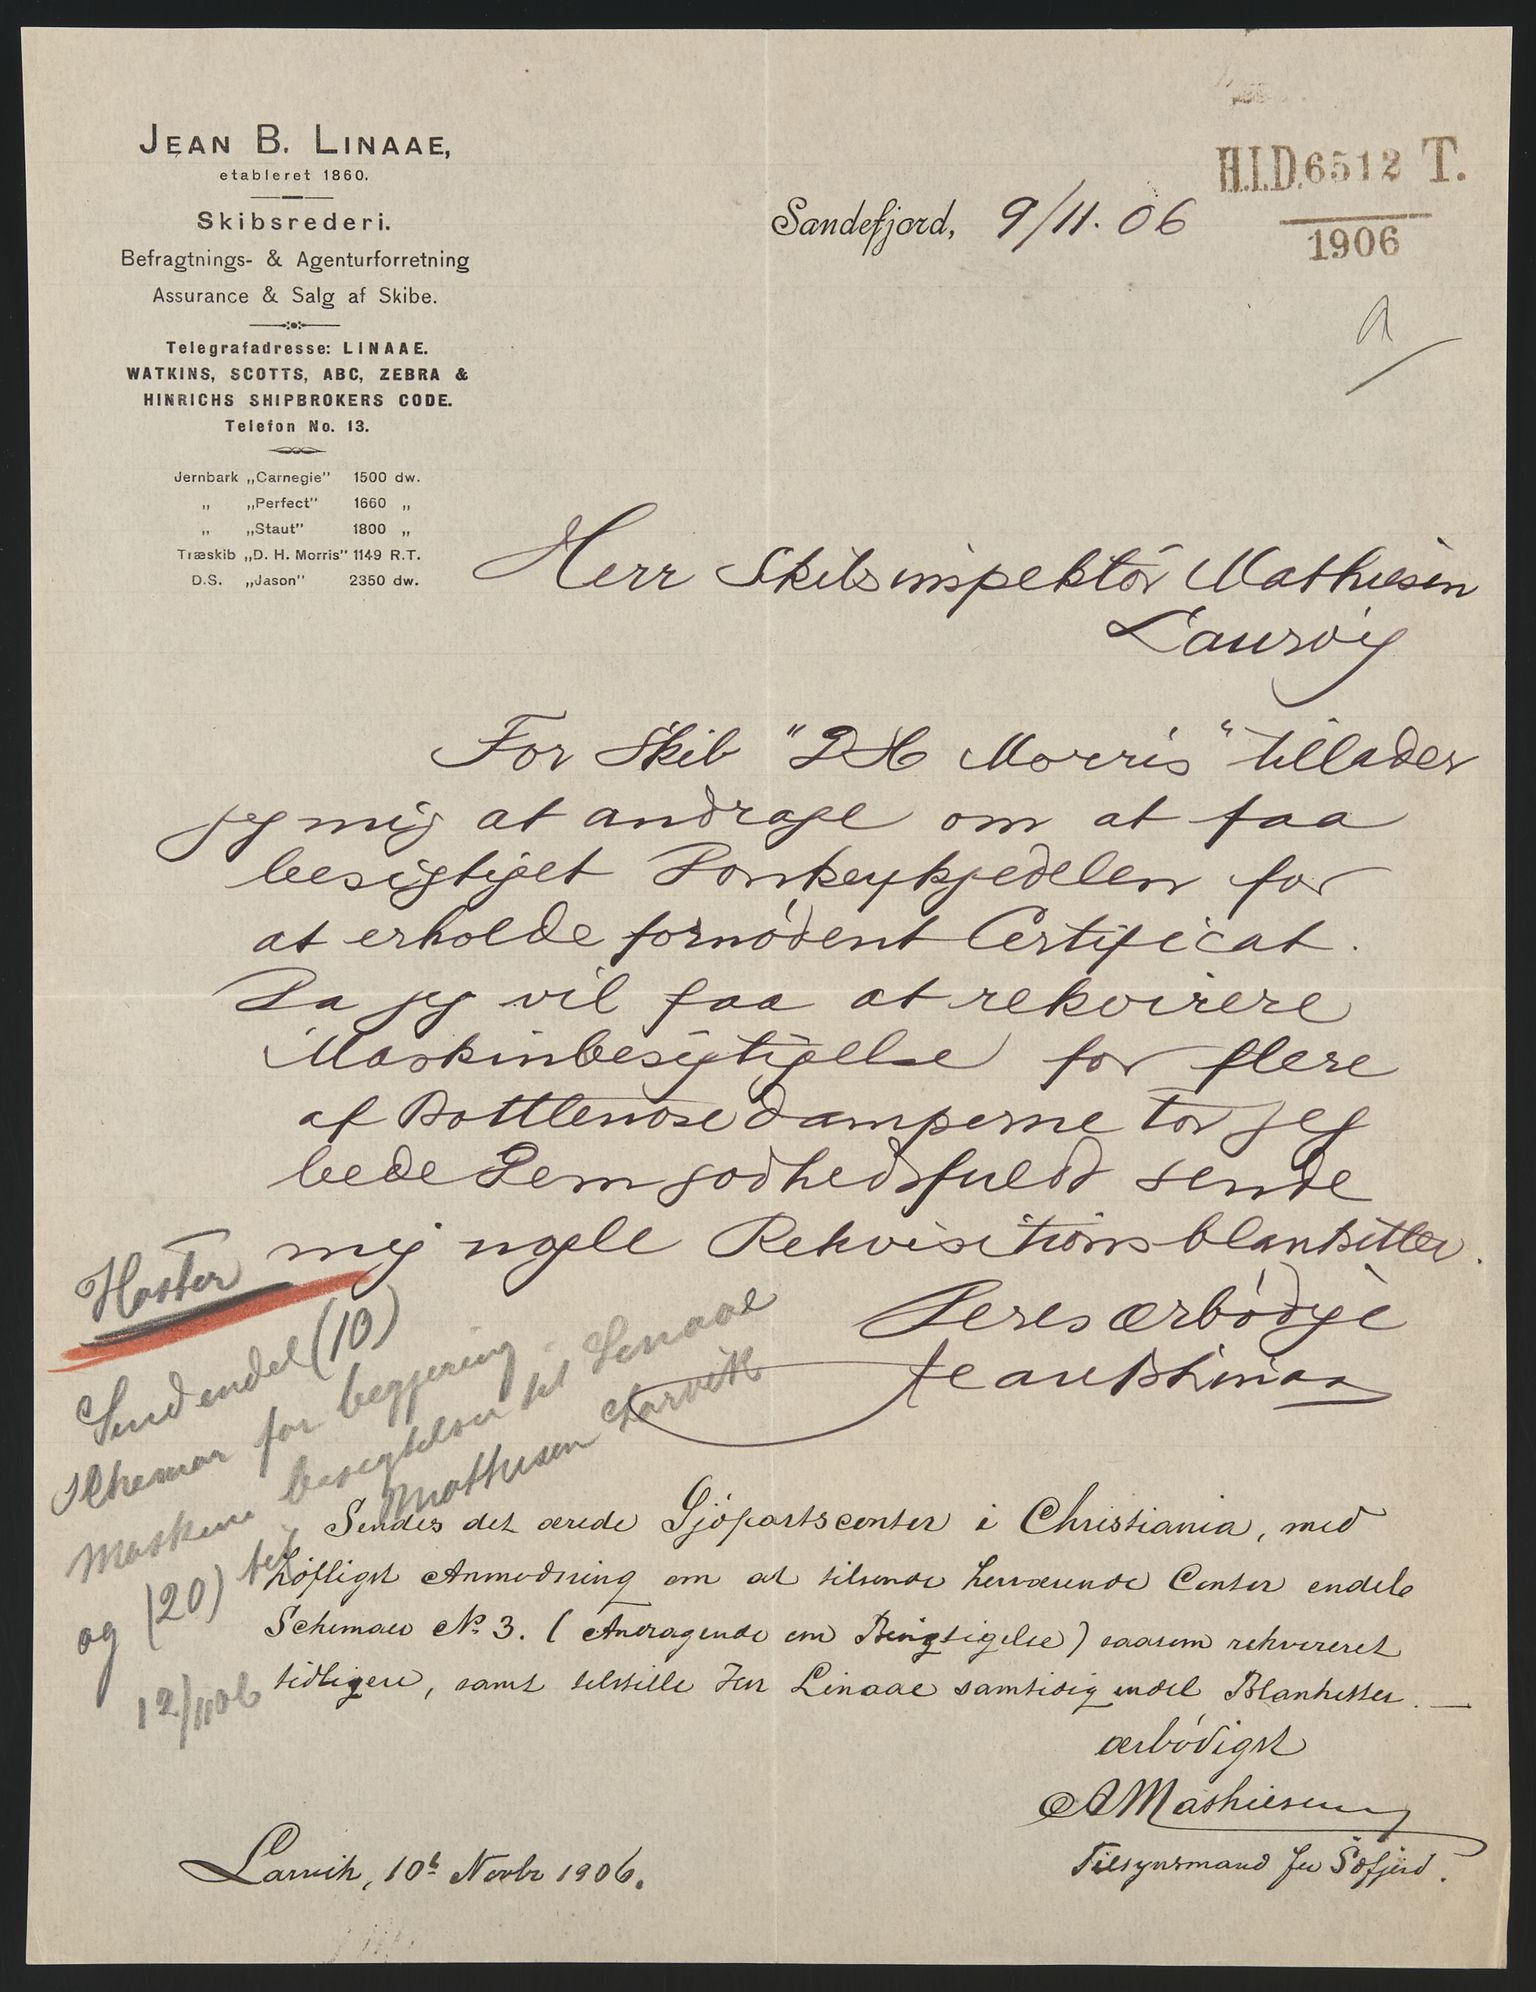 JEAN B. LINAAE,
etableret 1860.
Skibsrederi.
Befragtnings- & Agenturforretning
Assurance & Salg af Skibe.
Telegrafadresse: LINAAE.
WATKINS, SCOTTS, ABC, ZEBRA &
HINRICHS SHIPBROKERS CODE.
Telefon No. 13.
Jernbark „Carnegie" 1500 dw.
„ „Perfect" 1660 „
„ „Staut" 1800 „
Træskib „D. H. Morris" 1149 R.T.
D.S. „Jason" 2350 dw.
H.I.D. 6512 T.
1906
Sandefjord, 9/11. 06
Herr Skibsinspektör Mathiesen
Laurvig
For Skib "DH Morris" tillader
jeg mig at andrage om at faa
besigtiget Donkeykjedelen for
at erholde fornödent Certificat.
Da jeg vil faa at rekvirere
Maskinbesigtigelse for flere
af Bottlenosedamperne tör jeg
bede Dem godhedsfuldt sende
mig nogle Rekvisitionsblanketter.
Deres ærbödige
Jean B Linaae
Haster
Send endel (10)
Schemaer for begjæring
maskin besigtelser til Linaae
og (20) til Mathiesen Larvik
12/11 06
Sendes det ærede Sjöfartscontor i Christiania, med
höfligst Anmodning om at tilsende herværende Contor endele
Schemaer No. 3. (Andragende om Besigtigelse) saasom rekvireret
tidligere, samt tilstille Herr Linaae samtidig endel Blanketter. —
ærbödigst
A Mathiesen
Tilsynsmand for Söfjord.
Larvik, 10de Novbr 1906.